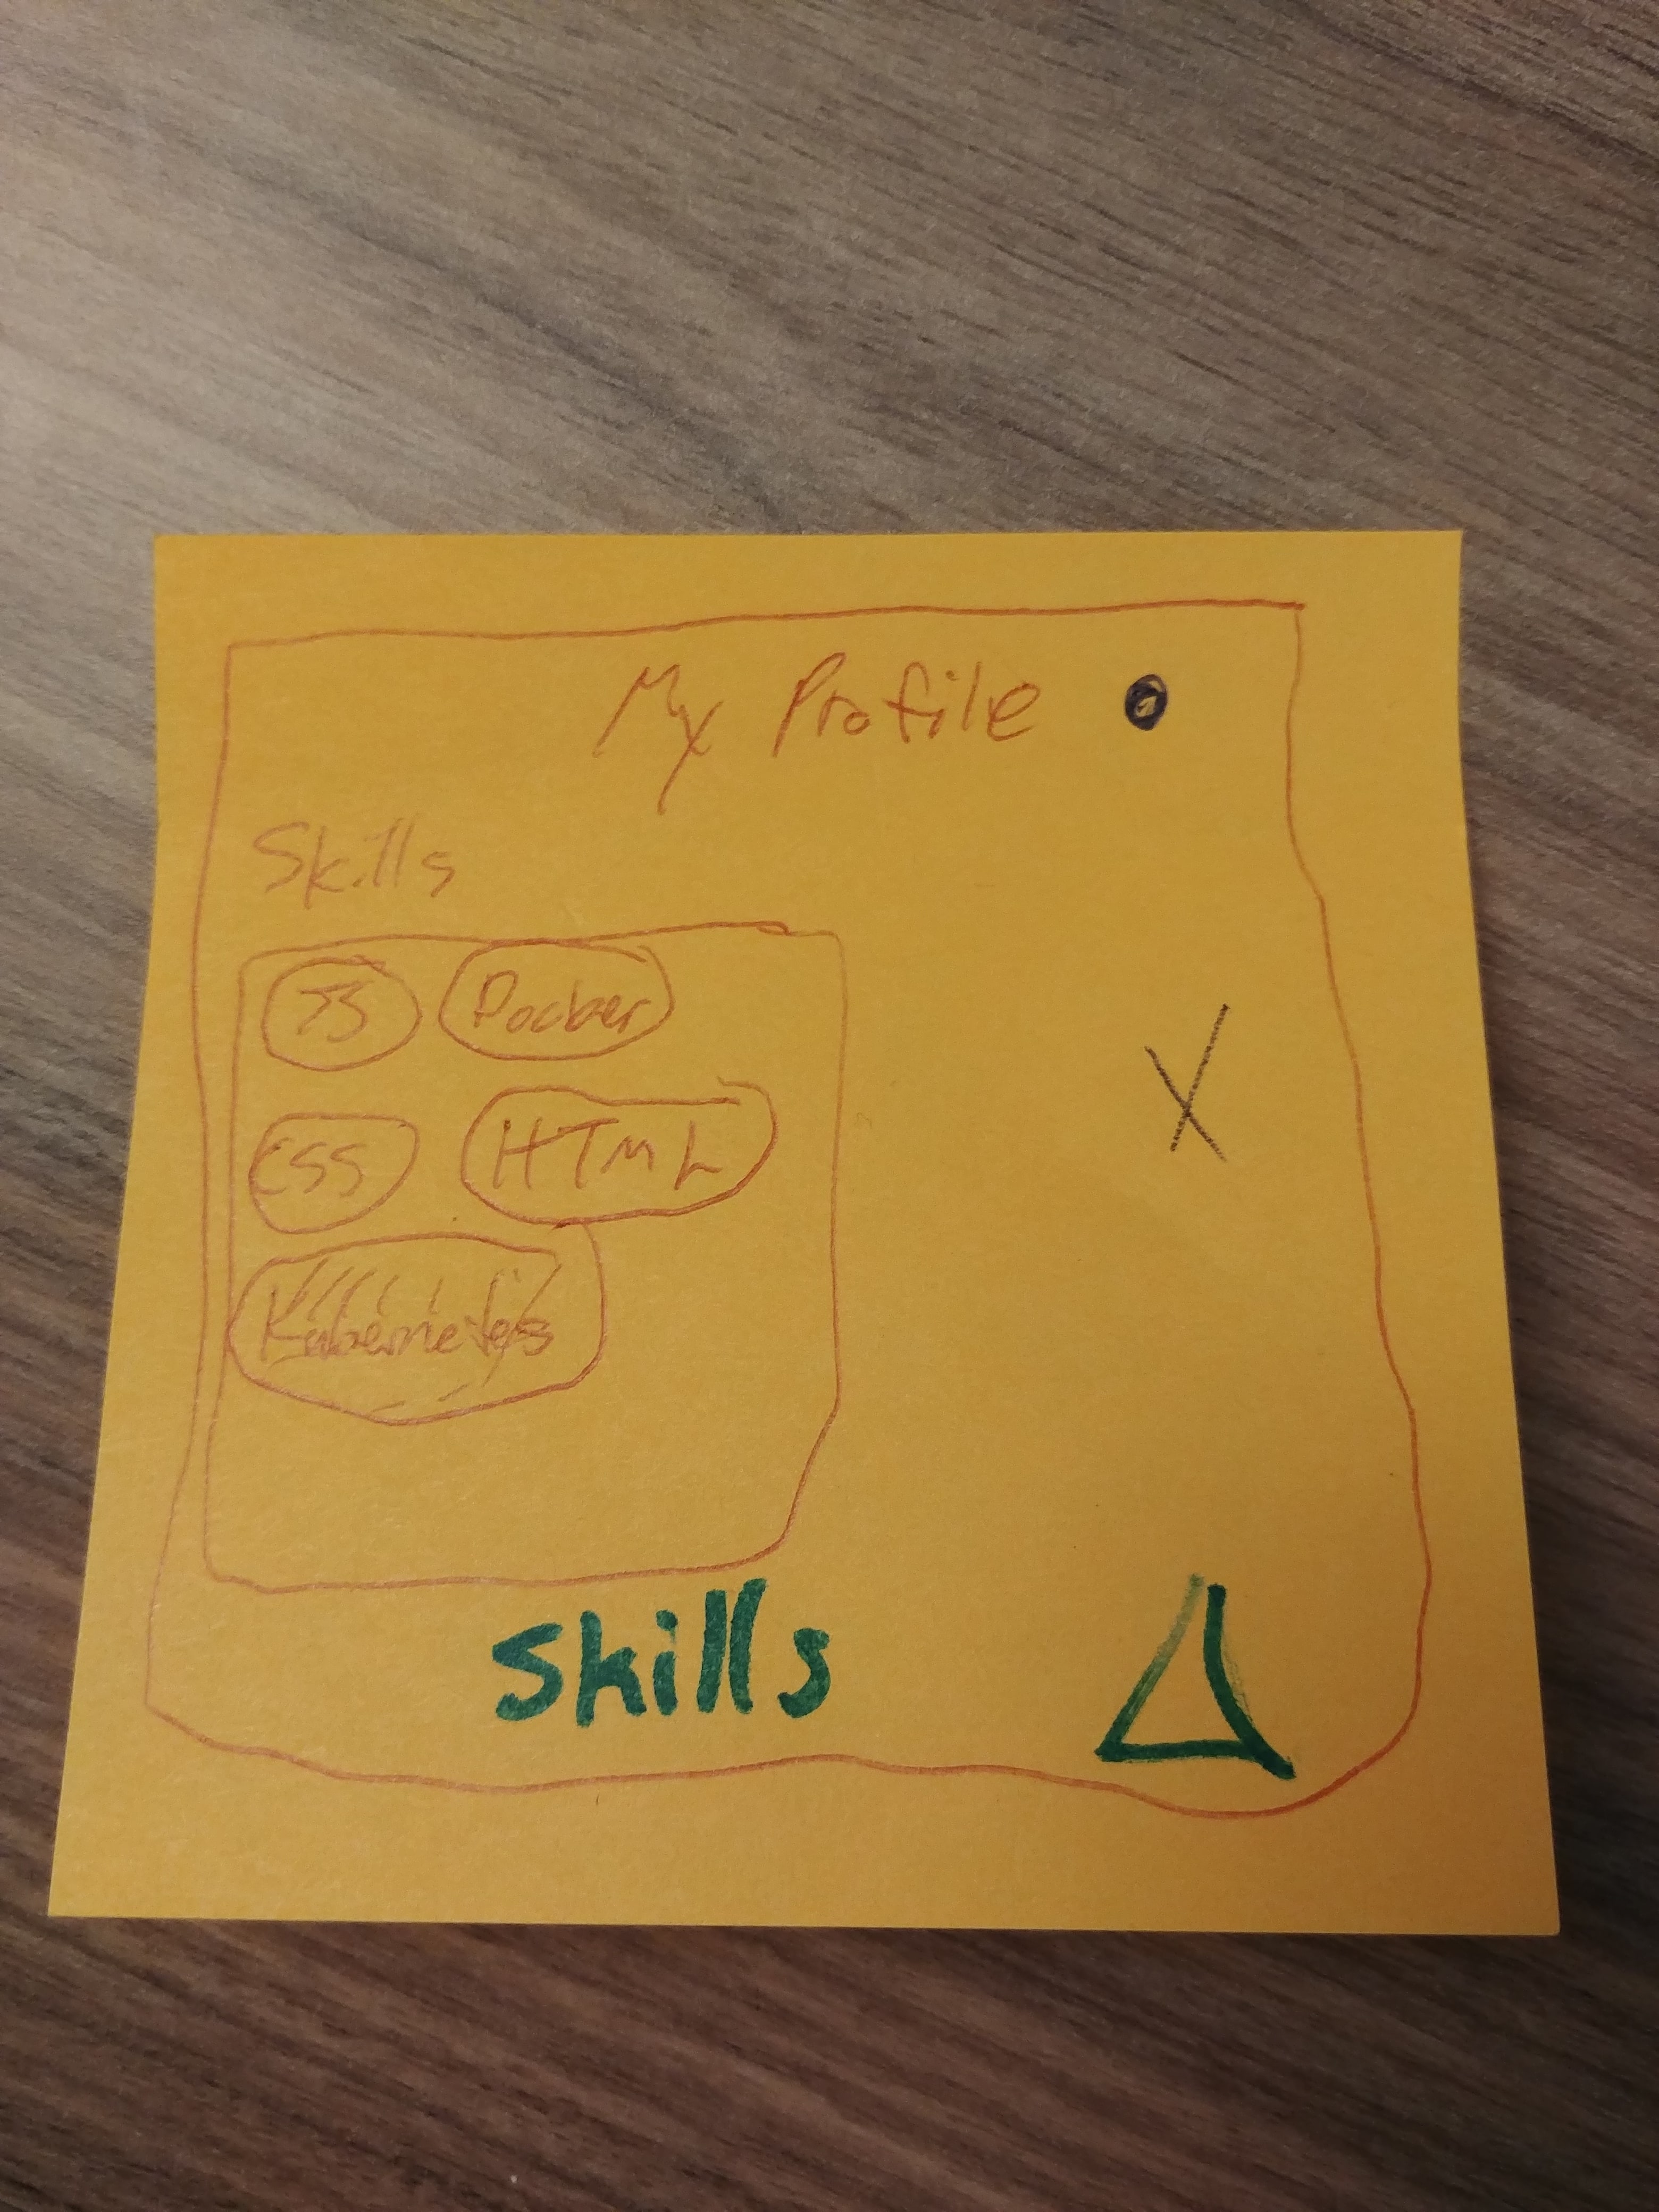 My Profile
Skills
JS Docker
CSS HTML
Kubernetes
X
Skills